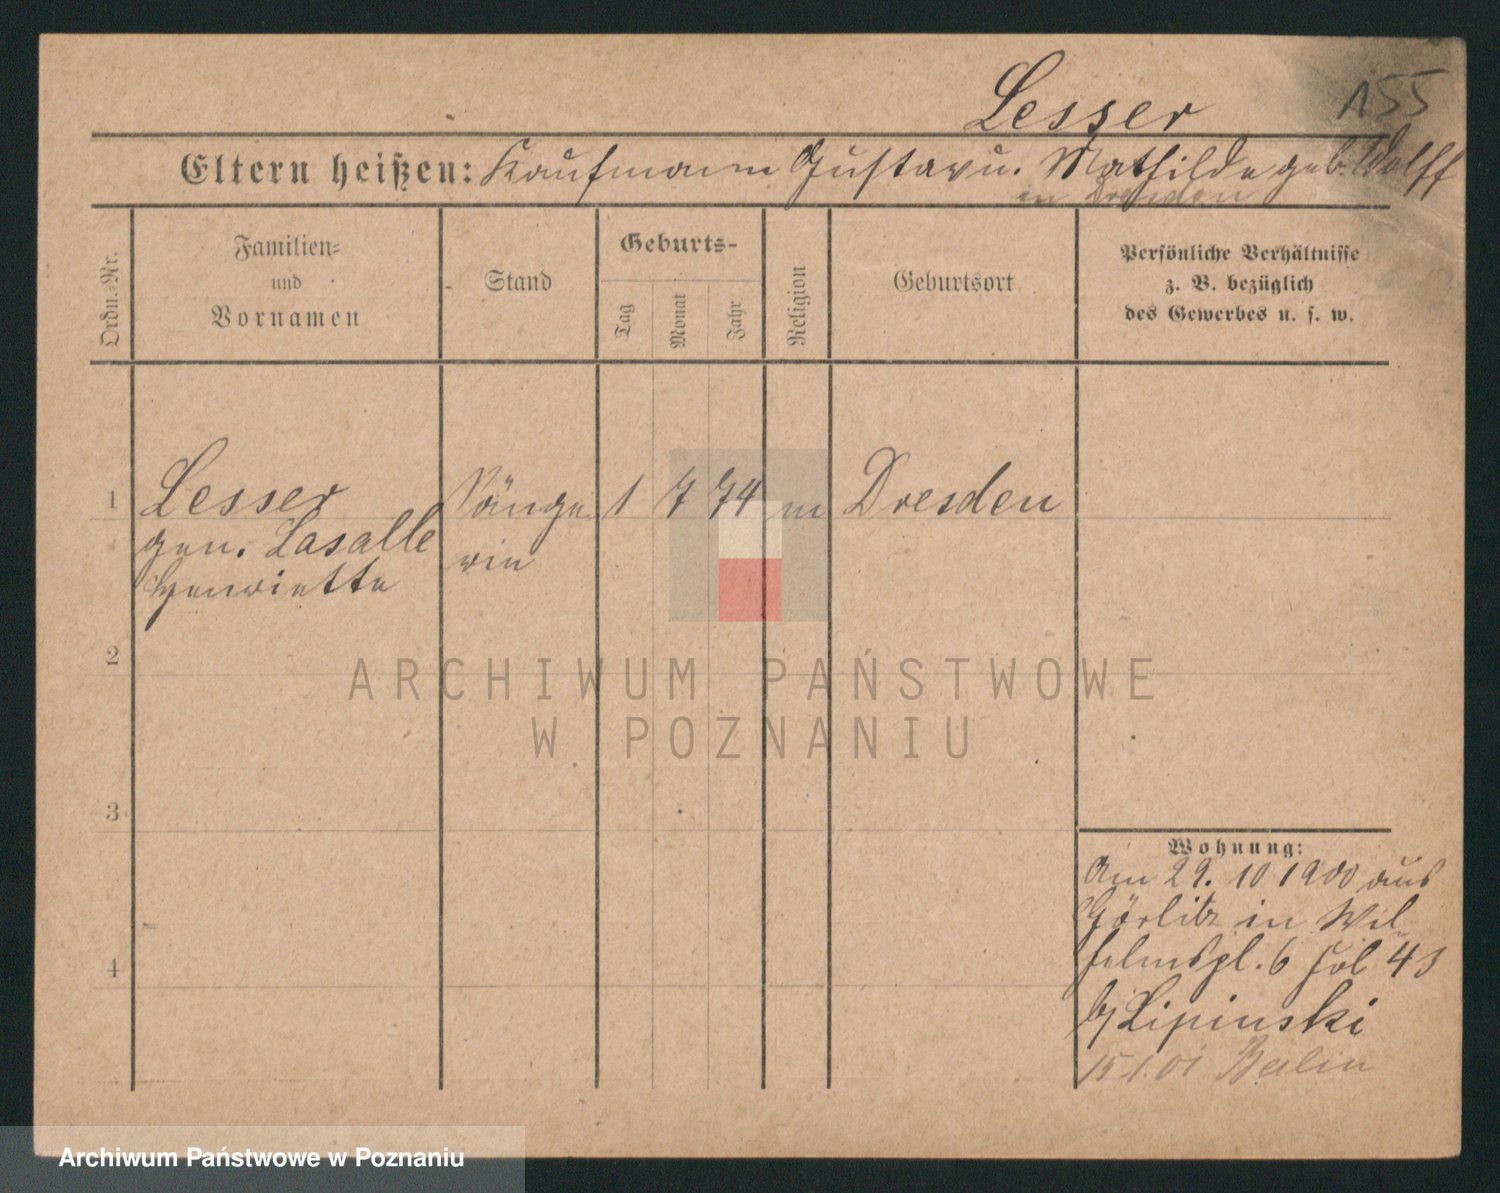 155
Lesser
Eltern heißen: Kaufmann Gustav u. Mathilde geb. Wolff
in Dresden
Ordn.-Nr.
Familien-
und
Vornamen
Stand
Geburts-
Tag
Monat
Jahr
Religion
Geburtsort
Persönliche Verhältnisse
z. B. bezüglich
des Gewerbes u. s. w.
1 Lesser Sänge 1 7 74 m Dresden
gen. Lasalle rin
Henriette
2
3
4
Wohnung:
Am 29. 10 1900 aus
Görlitz in Wil
helmspl. 6 43
b/ Lipinski
15.1.01 Berlin
ARCHIWUM PAŃSTWOWE
W POZNANIU
Archiwum Państwowe w Poznaniu